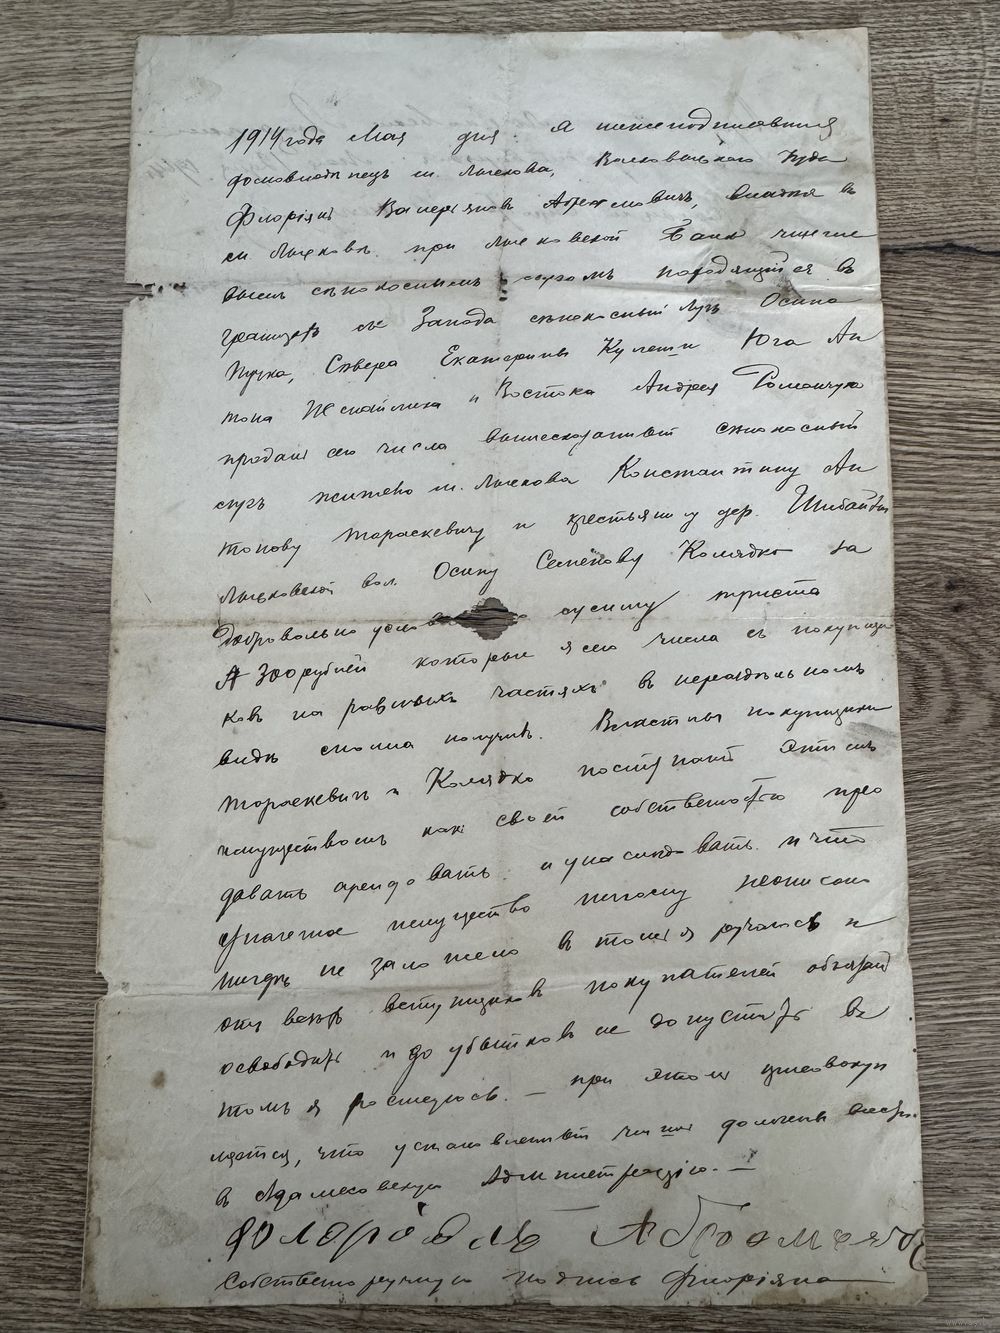 1914 года Мая дня. Я нижеподписавшийся
домовладелец м. Лысково, Волковыскаго уѣзда
Флоріянъ Валеріяновъ Абрамовичъ, владѣя въ
м. Лысковѣ при Лысковской
сѣнокоснымъ лугомъ находящійся въ
границѣ съ Запада сѣнокосный лугъ Осипа
Пучка, Сѣвера Екатерины Кулеши Юга Ан
тона и Востока Андрея Романчука
продалъ сего числа вышесказанный сѣнокосный
лугъ жителю м. Лыскова Константину Ан
тонову Тараскевичу и крестьянину дер. Шибайды
Лысковской вол. Осипу Семенову Колядко за
добровольно сумму триста
300 рублей которые я сего числа съ покупщи
ковъ на равныхъ частяхъ въ нераздѣльномъ
видѣ сполна получилъ. Властны покупщики
Тараскевичъ и Колядко этимъ
имуществомъ какъ своей собственостью прео
давать арендовать и и что
имущество никому неописано
нигдѣ не заложено въ томъ я ручаюсь и
отъ всѣхъ вступщиковъ покупателей обязанъ
освободить и до убытковъ не допустить въ
томъ я росписуюсь. — при этомъ
мятся, что должны
въ Администрацію. —
Флоріянъ Абрамовичъ
Собственоручную подпись Флоріяна